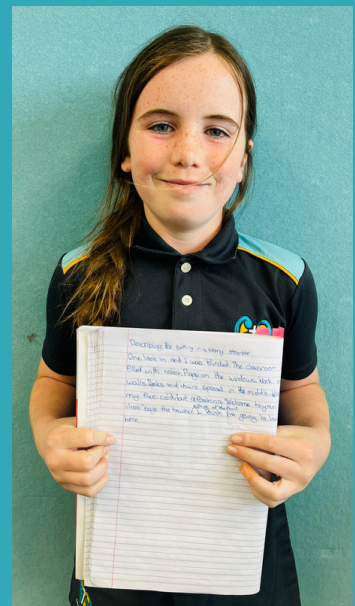 Describing the setting in a story starter.
One look in and I was blinded. The classroom
filled with colour. Pages on the windows, book on
walls. Desks and chairs spread in the middle.
my face, cold but refreshing. Welcome to your
class" says the teacher at the front. I think I'm going to
here.